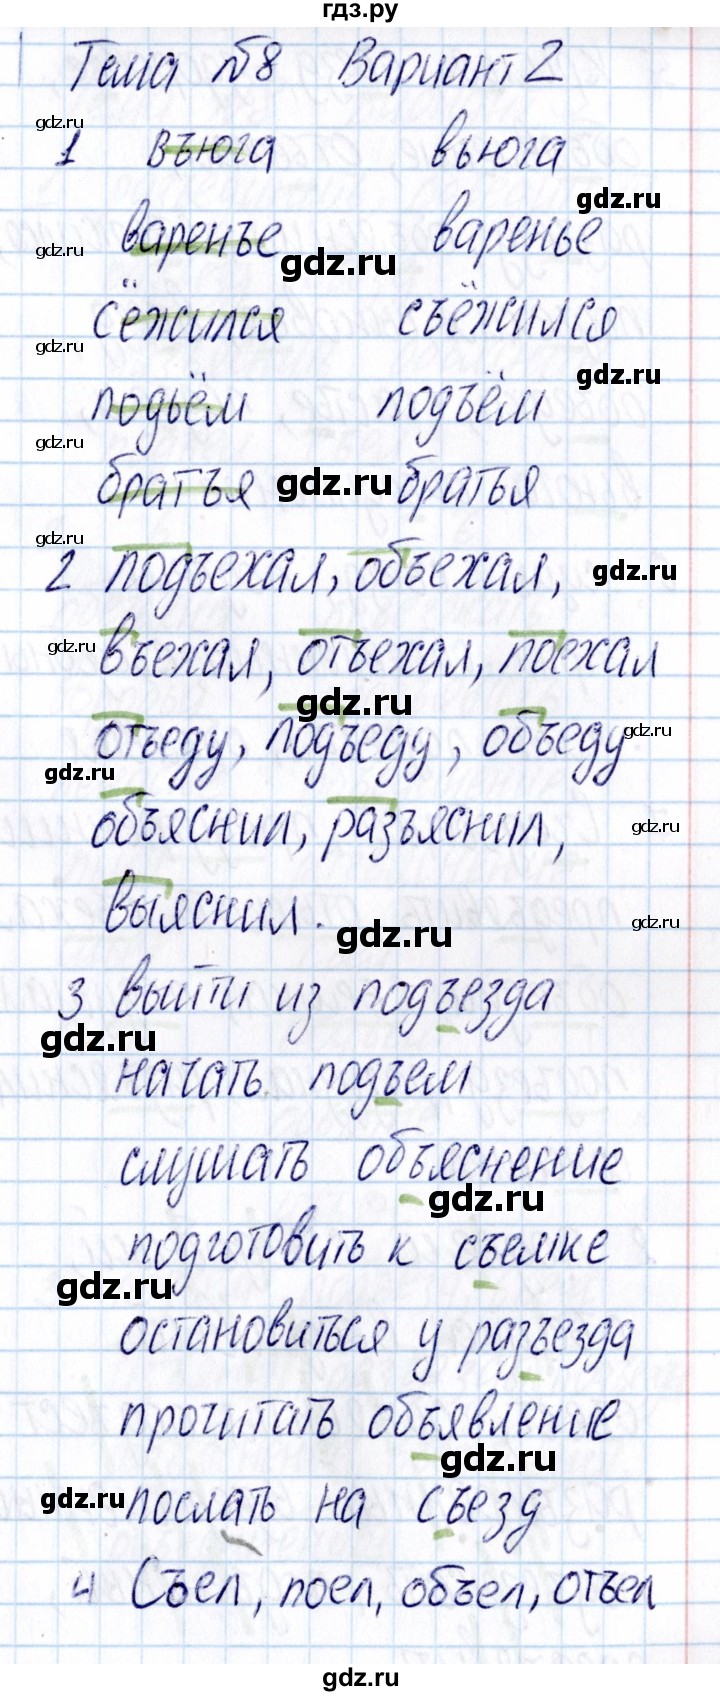 гдз.ру
Тема №8 Вариант 2
gdz.ru
1 въюга вьюга
gdz.ru
варенъе варенье
gdz.ru
gdz.ru
сёжился съёжился
gdz.ru
gdz.ru
подьём подъём
gdz.ru
братъя братья
gdz.ru
gdz.ru
2 подъехал, объехал,
gdz.ru
въехал, отъехал, поехал
gdz.ru
gdz.ru
отъеду, подъеду, объеду
gdz.ru
gdz.ru
объяснил, разъяснил,
gdz.ru
выяснил.
gdz.ru
gdz.ru
3 выйти из подъезда
gdz.ru
начать подъем
слушать объяснение
gdz.ru
подготовить к съемке
gdz.ru
остановиться у разъезда
прочитать объявление
gdz.ru
gdz.ru
послать на съезд
4 Съел, поел, объел, отъел
gdz.ru